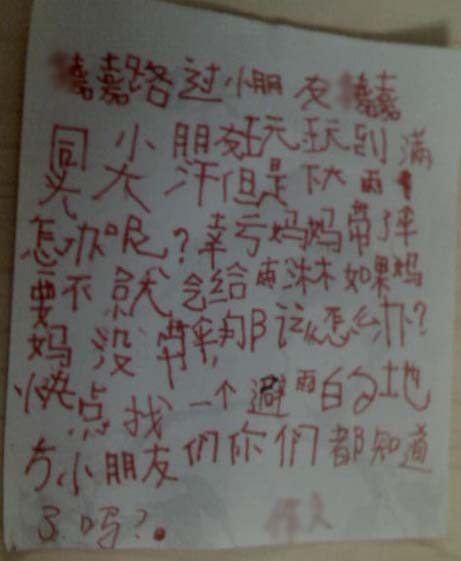 嘉嘉路过小朋友嘉嘉
同小朋友玩玩到满
头大汗但是下大雨
怎办呢?幸亏妈妈带了伞
要不就会给雨淋如果妈
妈没带伞那该怎么办?
快点找一个避雨的地
方小朋友们你们都知道
了吗?。